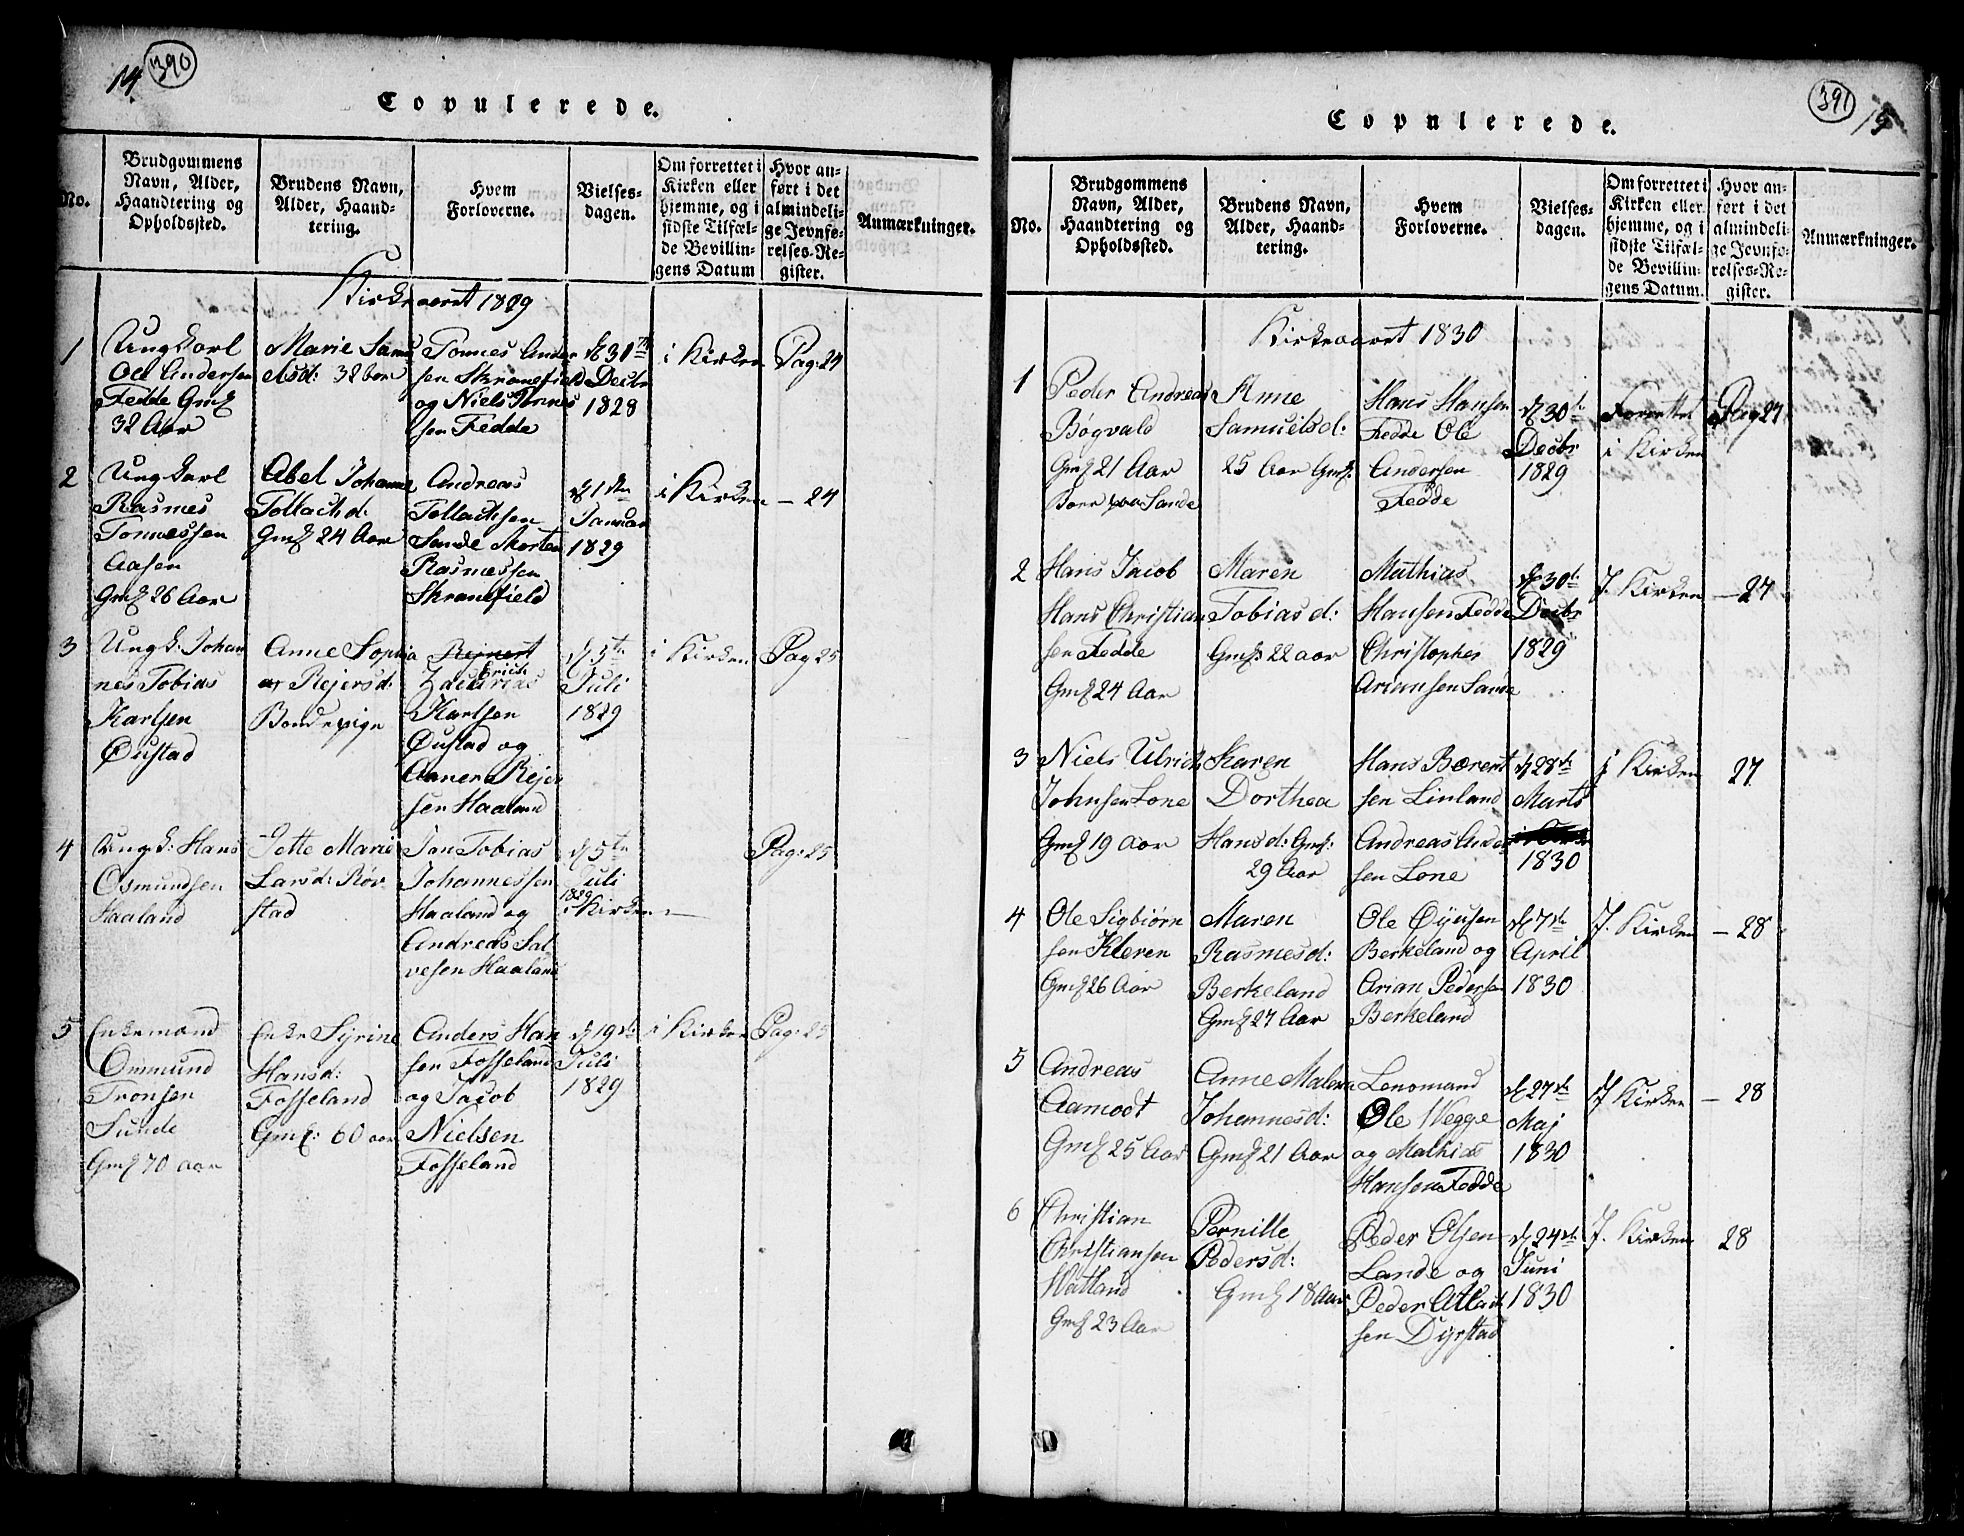 14.
390
Copulerede.
No.
Brudgommens
Navn, Alder,
Haandtering og
Opholdssted.
Brudens Navn,
Alder, Haand-
tering.
Hvem
Forloverne.
Vielses-
dagen.
Om forrettet i
Kirken eller
hjemme, og i
sidste Tilfæl-
de Bevillin-
gens Datum
Hvor an-
ført i det
almindeli-
ge Jevnfø-
relses-Re-
gister.
Anmærkninger.
Kirkeaaret 1829
1
Ungkarl
Ole Andersen
Fedde Gmf
32 Aar
Marie Samu
elsd: 32
Tonnes Ander
sen Skranefield
og Niels Tønnes
sen Fedde
d 31te
Decbr
1828
i Kirken
Pag: 24
2
Ungkarl
Rasmes
Tonnessen
Aasen
Gmf 26 Aar
Abel Johanne
Tollachd:
Gmf 24 Aar
Andreas
Tollachsen
Sande Morten
Rasmessen
Skranefield
d 1ste
Januar
1829
i Kirken
- 24
3
Ungk: Johan
nes Tobias
Karlsen
Øustad
Anne Sophia
Rejersd:
Bondepige
Rejnert
Erich
Zacarias
Karlsen
Øustad og
Rejer
sen Haaland
d 5te
Juli
1829
i Kirken
Pag 25
4
Ungk: Hans
Osmundsen
Haaland
Jette Marie
Larsd: Røv
stad
Jan Tobias
Johannessen
Haaland og
Andreas Sal
vesen Haaland
d 5te
Juli
1829
i Kirken
Pag: 25
5
Enkemand
Ommund
Tronsen
Sunde
Gmf 70 aar
Enke Syrine
Hansd:
Fosseland
Gmf: 60 aar
Anders Han
sen Fosseland
og Jacob
Nielsen
Fosseland
d 19de
Juli
1829
i Kirken
Pag: 25
391
15
Copulerede.
No.
Brudgommens
Navn, Alder,
Haandtering og
Opholdssted.
Brudens Navn,
Alder, Haand-
tering.
Hvem
Forloverne.
Vielses-
dagen.
Om forrettet i
Kirken eller
hjemme, og i
sidste Tilfæl-
de Bevillin-
gens Datum.
Hvor an-
ført i det
almindeli-
ge Jevnfø-
relses-Re-
gister.
Anmærkninger.
Kirkeaaret 1830
1
Peder Andreas
Bøgvald
Gmf 21 Aar
Boer paa Sande
Anne
Samuelsd:
25 Aar Gmf:
Hans Hansen
Fedde Ole
Andersen
Fedde
d 30te
Decbr
1829
Forrettet
i Kirken
Pag 27
2
Hans Jacob
Hans Christian
sen Fedde
Gmf 24 Aar
Maren
Tobiasd:
Gmf: 22 aar
Mathias
Hansen Fedde
Christopher
Ariansen Sande
d 30te
Decbr
1829
I. Kirken
- 27
3
Niels Ulrich
Johnsen Lone
Gmf 19 Aar
Karen
Dorthea
Hansd: Gmf:
29 Aar
Hans Børent
sen Linland
Andreas Ander
sen Lone
d 28de
Marts
1830
i Kirken
27
4
Ole Sigbiørn
sen Kleren
Gmf 26 Aar
Maren
Rasmesd:
Berkeland
Gmf 27 Aar
Ole Øyesen
Berkeland og
Arian Pedersen
Berkeland
d 7de
April
1830
I. Kirken
- 28
5
Andreas
Aamodt
Gmf 25 Aar
Anne Malena
Johannesd:
Gmf 21 Aar
Lensmand
Ole Wegge
og Mathias
Hansen Fedde
d 27de
Maj
1830
I Kirken
- 28
6
Christian
Christiansen
Watland
Gmf 23 Aar
Pernille
Pedersd:
Gmf 18 Aar
Peder Olsen
Lande og
Peder Atlack
sen Dyrstad
d 24de
Juni
1830
I. Kirken
28